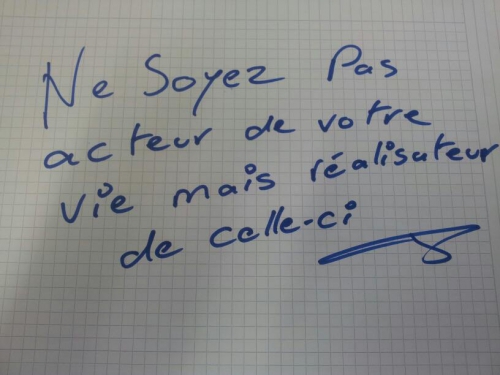 Ne Soyez Pas
acteur de votre
vie mais réalisateur
de celle-ci